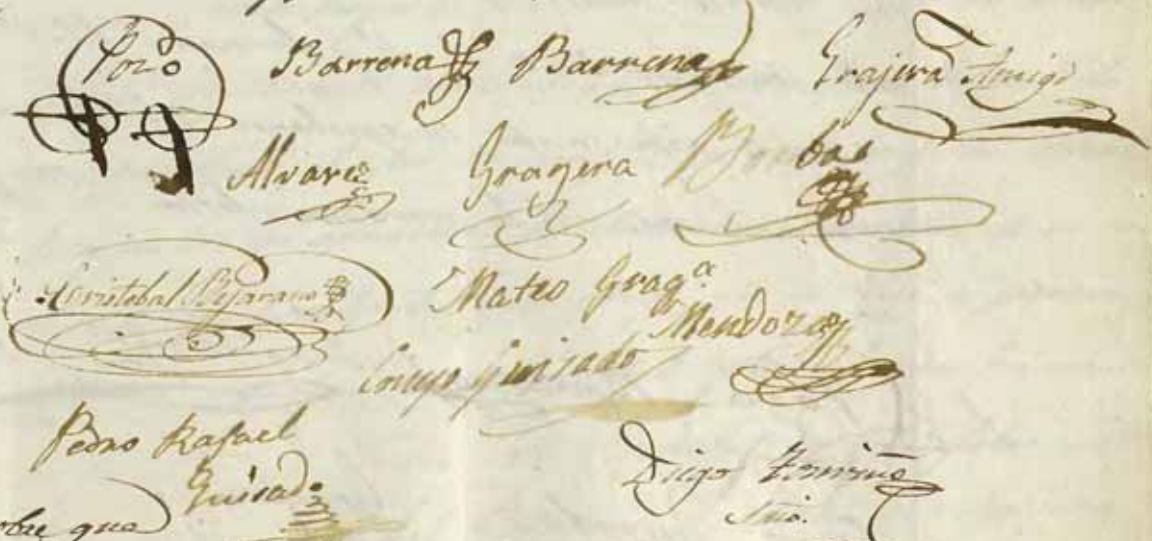 Pozo Barrena Barrena Grajera Amigo
Alvarez Gragera
Cristobal Bejarano Mateo Grag.ª
Mendoza
Guisado
Pedro Rafael
Guisado
Diego
Srio.
que